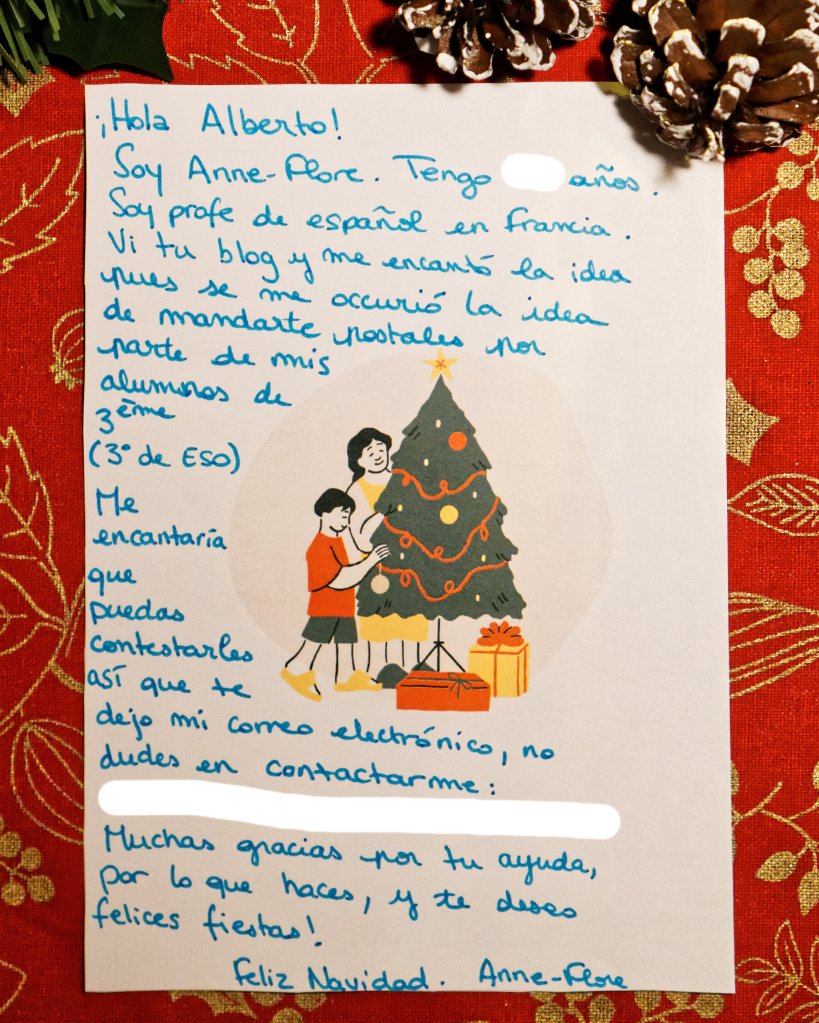 ¡Hola Alberto!
Soy Anne-Flore. Tengo años.
Soy profe de español en Francia.
Vi tu blog y me encantó la idea
pues se me occurió la idea
de mandarte postales por
parte de mis
alumnos de
3ème
(3° de ESO)
Me
encantaría
que
puedas
contestarles
así que te
dejo mi correo electrónico, no
dudes en contactarme:
Muchas gracias por tu ayuda,
por lo que haces, y te deseo
felices fiestas!
Feliz Navidad. Anne-Flore